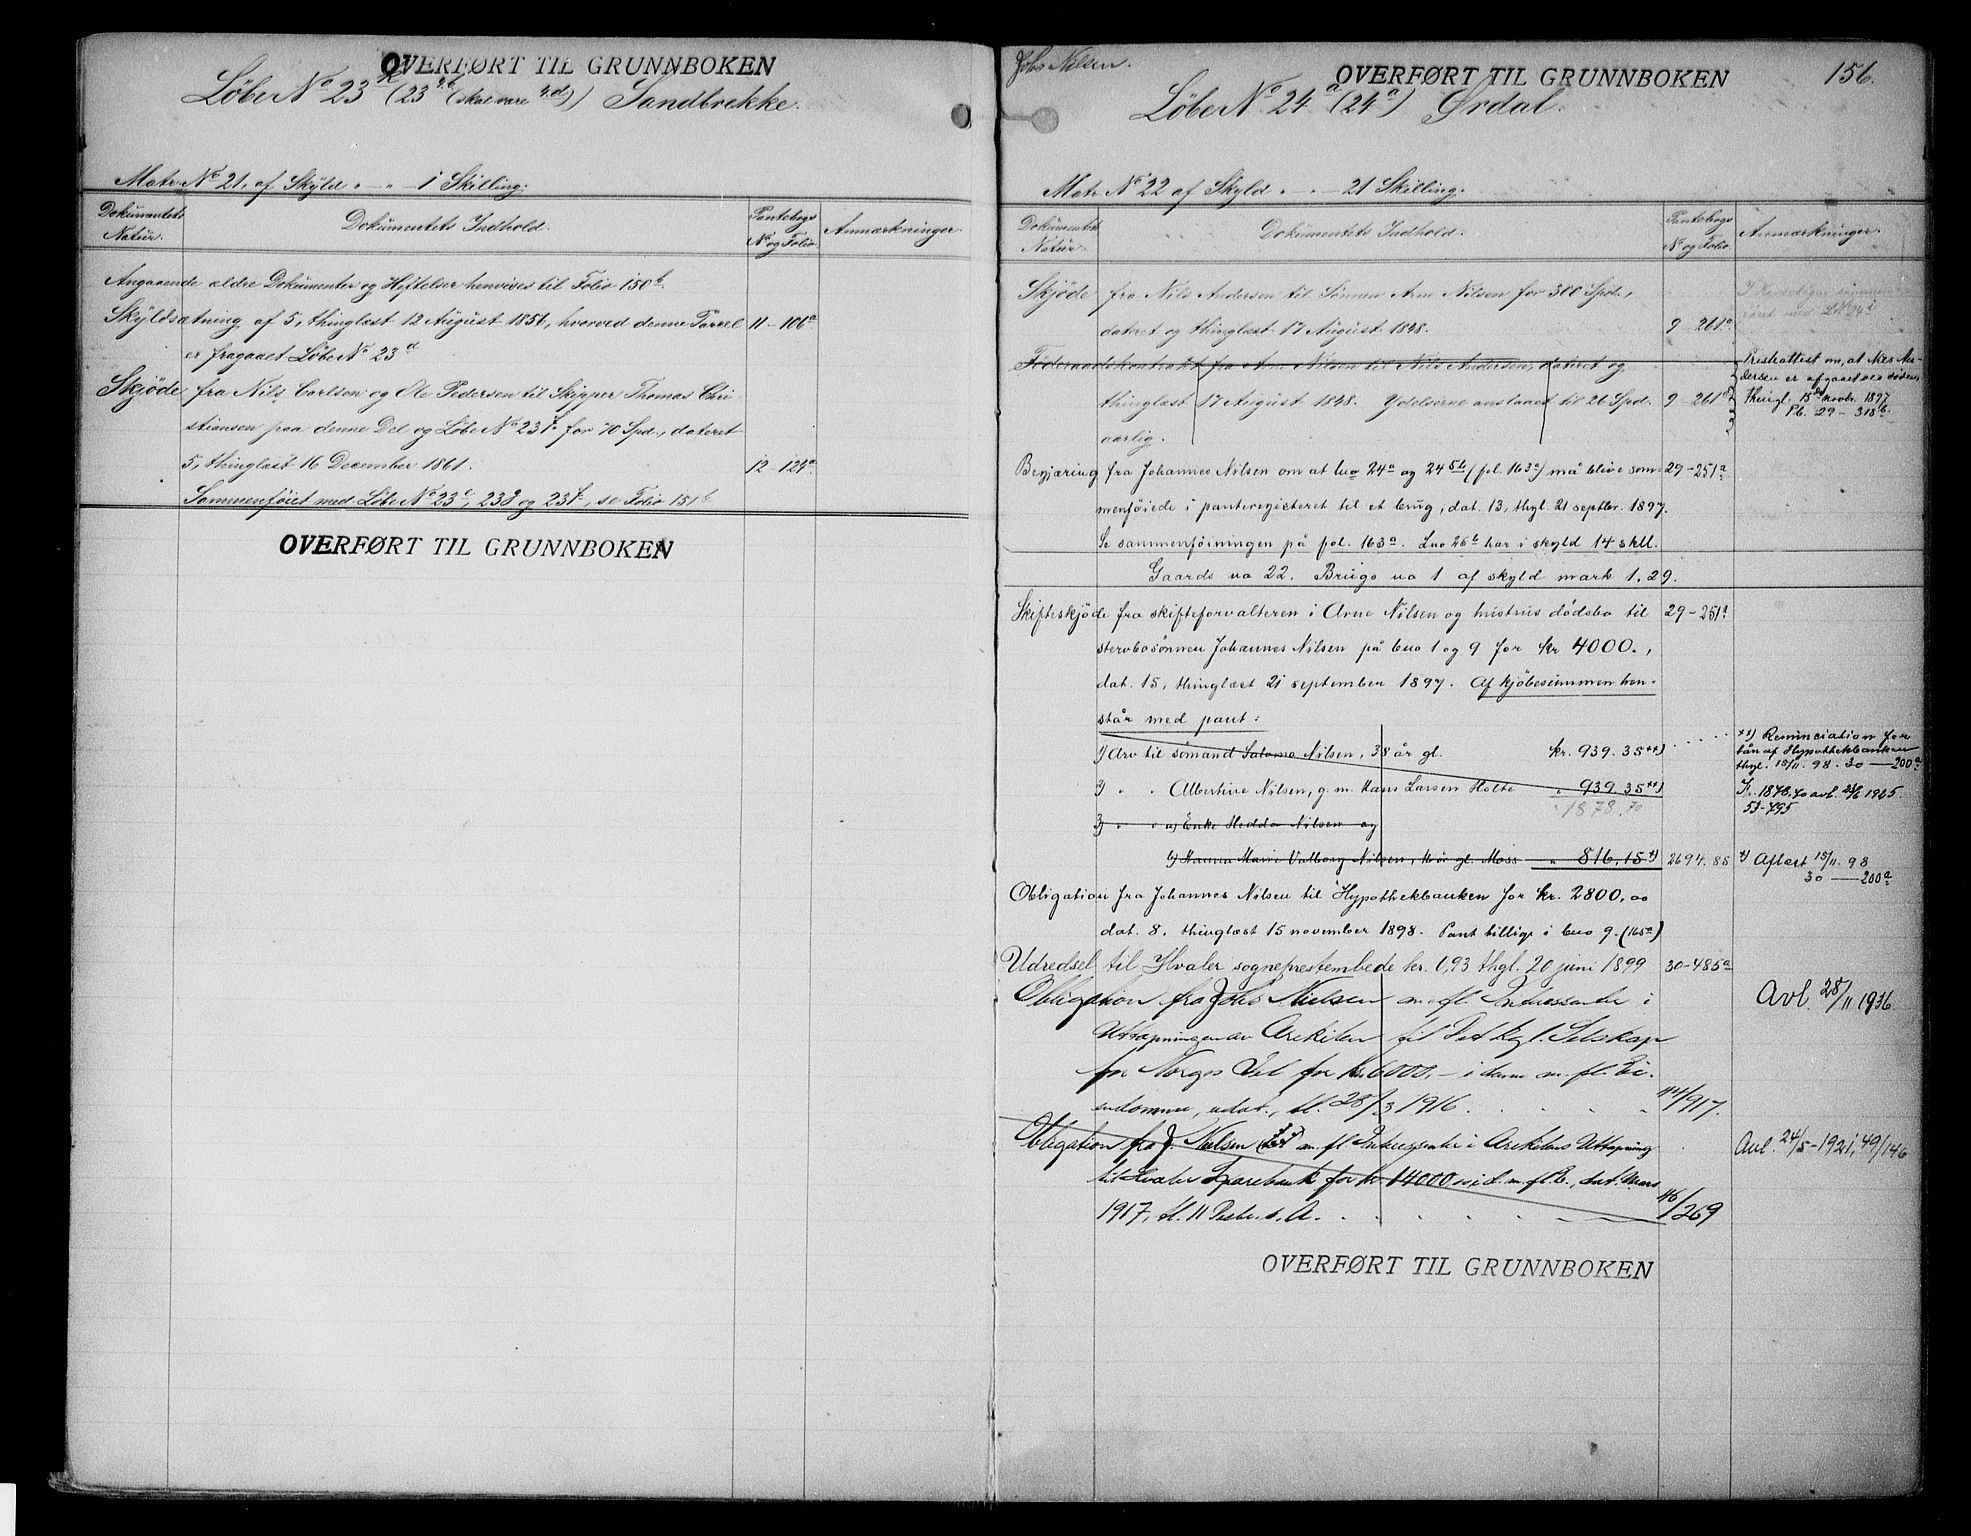 OVERFØRT TIL GRUNNBOKEN
Löbe No 23 (23 (skal være 4.d)) Sandbrekke.
Matr. No 21, af Skyld " — " 1 Skilling.
Dokumentets Natur. Dokumentets Indhold. Pantebogs No og Folio Anmærkninger
Angaaende ældre Dokumenter og Heftelser henvises til Folio 150b.
Skyldsætning af 5, thinglæst 12 August 1851, hvorved denne Parcel 11 - 106a
er fragaaet Löbe No 23d
Skjöde fra Nils Carlsen og Ole Pedersen til Skipper Thomas Chri
stiansen paa denne Del og Löbe No 23f for 70 Spd., dateret
5, thinglæst 16 December 1861. 12 - 124a
Sammenföiet med Löbe No 23e, 23g og 23f, se Folio 151b
OVERFØRT TIL GRUNNBOKEN
Johs Nilsen.
OVERFØRT TIL GRUNNBOKEN 156.
Löbe No 24a (24a) Ørdal.
Matr No 22 af Skyld " — " 21 Skilling.
Dokumentets Natur. Dokumentets Indhold. Pantebogs No og Folio Anmærkninger.
Skjöde fra Nils Andersen til Sönnen Arne Nilsen for 300 Spd.,
dateret og thinglæst 17 August 1848. 9 - 261a
Föderaadskontrakt fra Arne Nilsen til Nils Andersen, dateret og
thinglæst 17 August 1848. Ydelserne anslaaet til 26 Spd. 9 - 261a
aarlig.
Prestattest om, at Nils An-
dersen er afgaaet ved döden,
thingl. 15de novbr. 1897
Pb. 29 - 318b.
Begjæring fra Johannes Nilsen om at lno 24a og 24 5b (fol. 163a) må blive sam- 29-251a
menföiede i panteregisteret til et brug, dat. 13, thgl. 21 septbr. 1897.
Se sammenföiningen på fol. 163a. Lno 25b har i skyld 14 skll.
Gaards no 22. Brugs no 1 af skyld mark 1.29.
Skifteskjöde fra skifteforvalteren i Arne Nilsen og hustrus dödsbo til 29-251a
stervbosönnen Johannes Nilsen på bno 1 og 9 for kr 4000.,
dat. 15, thinglæst 21 september 1897. Af kjöbesummen hen-
står med pant:
1) Arv til sömand Salomo Nilsen, 38 år gl. kr. 939.35 ++)
2) " " Albertine Nilsen, g. m. Hans Larsen Holte " 939.35 ++)
1878.70
3) " " a) Enke Hedda Nilsen og
b) Hanna Marie Valborg Nilsen, år gl. Moss " 816.15 +) 2694.85
++) Renunciation for
lån af Hypothekbanken
thgl. 15/11. 98. 30 — 200a
Kr. 1878.70 avl. 1925.
53-795
+) Aflæst 15/11. 98
30 — 200a
Obligation fra Johannes Nilsen til Hypothekbanken for kr. 2800,00
dat. 8, thinglæst 15 november 1898. Pant tillige i bno 9. (165a)
Udredsel til Hvaler sogneprestembede kr. 0,93 thgl. 20 juni 1899 30-485a
Obligation fra Johs Nielsen m. fl. Interessenter i Avl. 28/11 1936.
Uttapningen av Arekilen til Det kgl. Selskap
for Norges Vel for kr. 6000,— i denne m. fl. Ei-
endomme, udat., tl. 28/3 1916. 44/917.
Obligation fra J. Nielsen m. fl. Interessenter i Arekilens Uttapning Avl. 24/5-1921, 49/146
til Hvaler Sparebank for kr 14000 m. fl. B., dat. Mars
1917, tl. 11 s. A. 46/269
OVERFØRT TIL GRUNNBOKEN